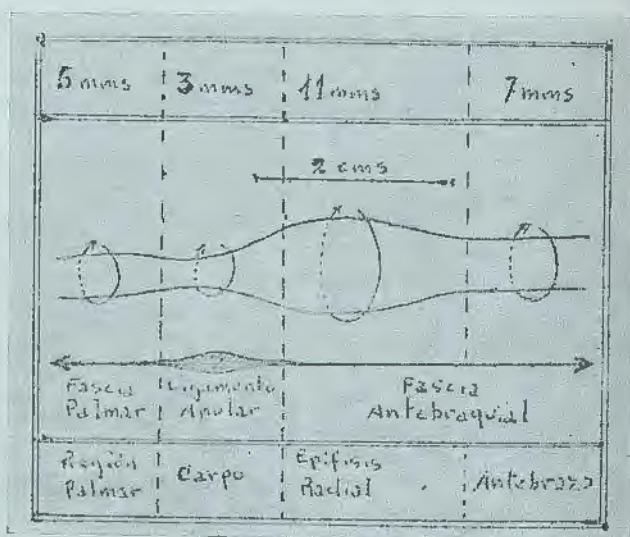 5 mms 3 mms 11 mms 7 mms
2 cms
Fascia Palmar
Ligamento Anular
Fascia Antebraquial
Región Palmar
Carpo
Epífisis Radial
Antebrazo